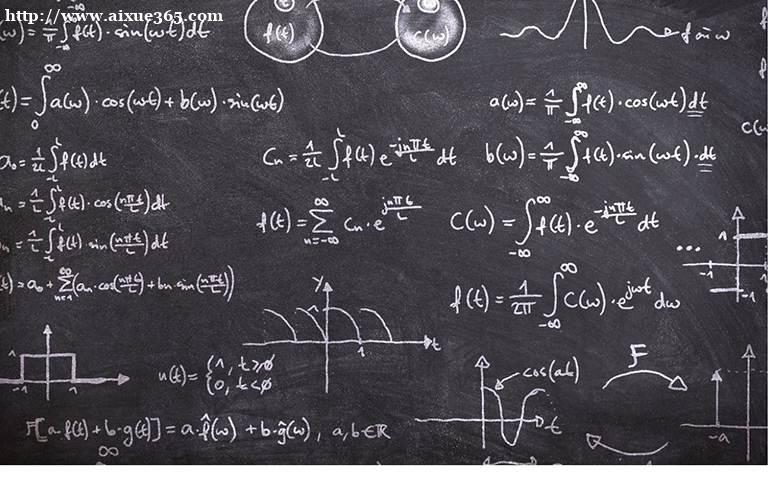 http://www.aixue365.com
(ω) = 1/π ∫_{-∞}^{∞} f(t)·sin(ωt)dt
f(t)
C(ω)
f sin ω
(t) = ∫_0^∞ a(ω)·cos(ωt) + b(ω)·sin(ωt)
a(ω) = 1/π ∫_{-∞}^{∞} f(t)·cos(ωt)dt
C(ω
a₀ = 1/2L ∫_{-L}^{L} f(t)dt
Cn = 1/2L ∫_{-L}^{L} f(t) e^{-jnπt/L} dt
b(ω) = 1/π ∫_{-∞}^{∞} f(t)·sin(ωt)·dt
n = 1/L ∫_{-L}^{L} f(t)·cos(nπt/L)dt
f(t) = ∑_{n=-∞}^{∞} Cn·e^{jnπt/L}
C(ω) = ∫_{-∞}^{∞} f(t)·e^{-jnπt/L} dt
n = 1/L ∫_{-L}^{L} f(t) sin(nπt/L)dt
...
1
-1
(t) = a₀ + ∑_{n=1}^{∞} (an·cos(nπt/L) + bn·sin(nπt/L))
f(t) = 1/2π ∫_{-∞}^{∞} C(ω)·e^{jωt} dω
y
1
t
1
-1
1
u(t) = {1, t>0
{0, t<0
cos(at)
t
F
-a
F[a·f(t) + b·g(t)] = a·f̂(ω) + b·ĝ(ω), a,b∈ℝ
∞